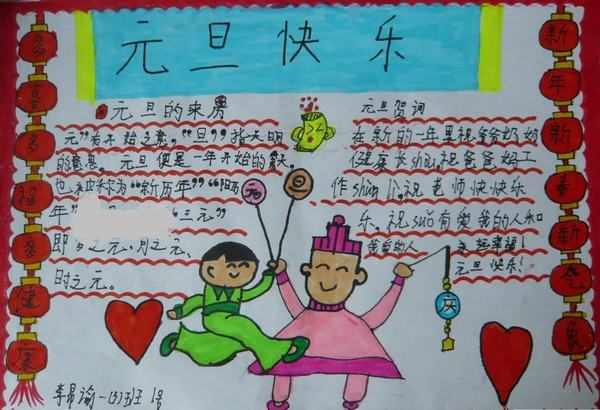 元旦快乐
多喜多福多健康
新年新事新气象
元旦的来历
元旦贺词
"元"为开始之意,"旦"指天明
的意思。元旦便是一年开始的第一天
也被称为"新历年""阳历
年"
"三元"
即岁之元、月之元、
时之元。
在新的一年里祝爷爷奶奶
健康长shòu,祝爸爸妈妈工
作shùn lì,祝老师快快乐
乐。祝suǒ有爱我的人和
我爱的人
幸福!
元旦快乐!
元
旦
庆
李昂渝一(3)班 1号